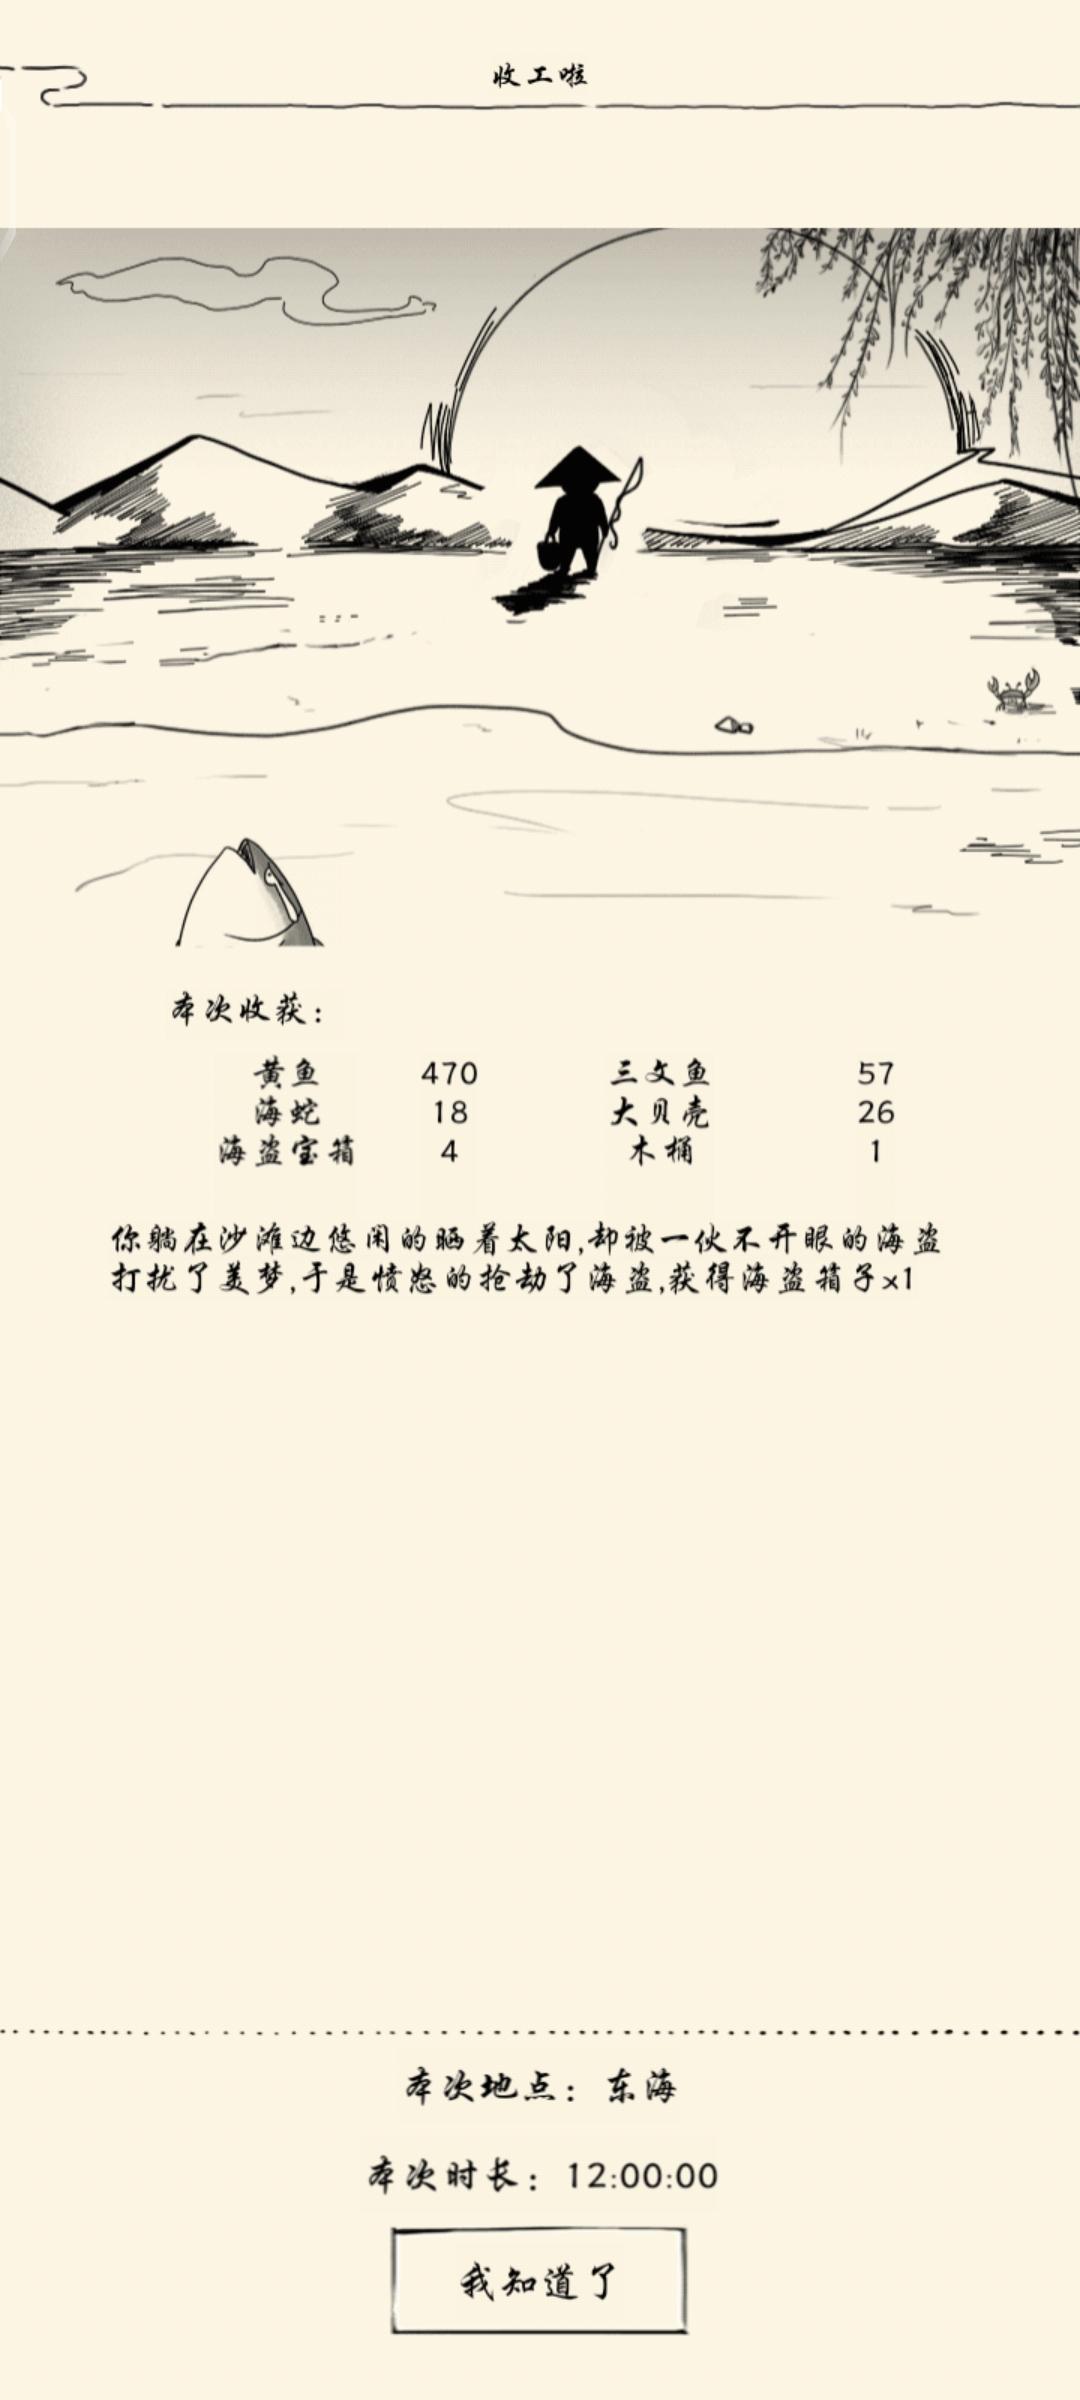 收工啦
本次收获：
黄鱼 470 三文鱼 57
海蛇 18 大贝壳 26
海盗宝箱 4 木桶 1
你躺在沙滩边悠闲的晒着太阳,却被一伙不开眼的海盗
打扰了美梦,于是愤怒的抢劫了海盗,获得海盗箱子x1
本次地点：东海
本次时长：12:00:00
我知道了